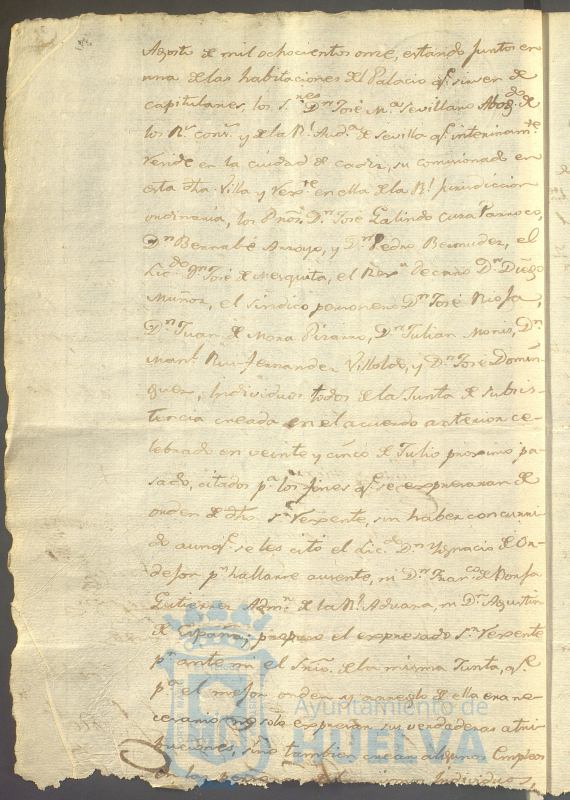 Agosto de mil ochocientos once, estando juntos en
una de las habitaciones del Palacio qe. sirven de
capitulares, los Sres. Dn. José Ma. Sevillano Abogdo. de
los Rs. cons. y de la Rl. Auda. de Sevilla qe. interinamte.
reside en la ciudad de Cadiz, su comisionado en
esta dha. Villa y Regte. en ella de la Rl. Jurisdiccion
ordinaria, los Pros. Dn. José Galindo cura Parroco,
Dn. Bernabé Arroyo, y Dn. Pedro Bermudez, el
Licdo. Dn. José de Mesquita, el Regr. decano Dn. Diego
Muñoz, el sindico personero Dn. José Rioja,
Dn. Juan de Mora Pizarro, Dn. Julian Monis, Dn.
Manl. Ruiz Fernandez Villoldo, y Dn. José Domin-
guez, Individuos todos de la Junta de subcis-
tencia creada en el acuerdo anterior ce-
lebrado en veinte y cinco de Julio proximo pa-
sado, citados pa. los fines qe. se expresaran de
orden de dho. Sr. Regente, sin haber concurri-
do aunqe. se les citó el Licdo. Dn. Ygnacio de Or-
dejon pr. hallarse ausente, ni Dn. Franco. de Borja
Gutierrez Admr. de la Rl. Aduana, ni Dn. Agustin
de España; propuso el expresado Sr. Regente
pr. ante mi el Srio. de la misma Junta, qe.
pa. el mejor orden y arreglo de ella era ne-
cesario no solo expresar sus verdaderas atri-
buciones, sino tambien crear algunos Empleos
en las Individuos,
Ayuntamiento de
HUELVA